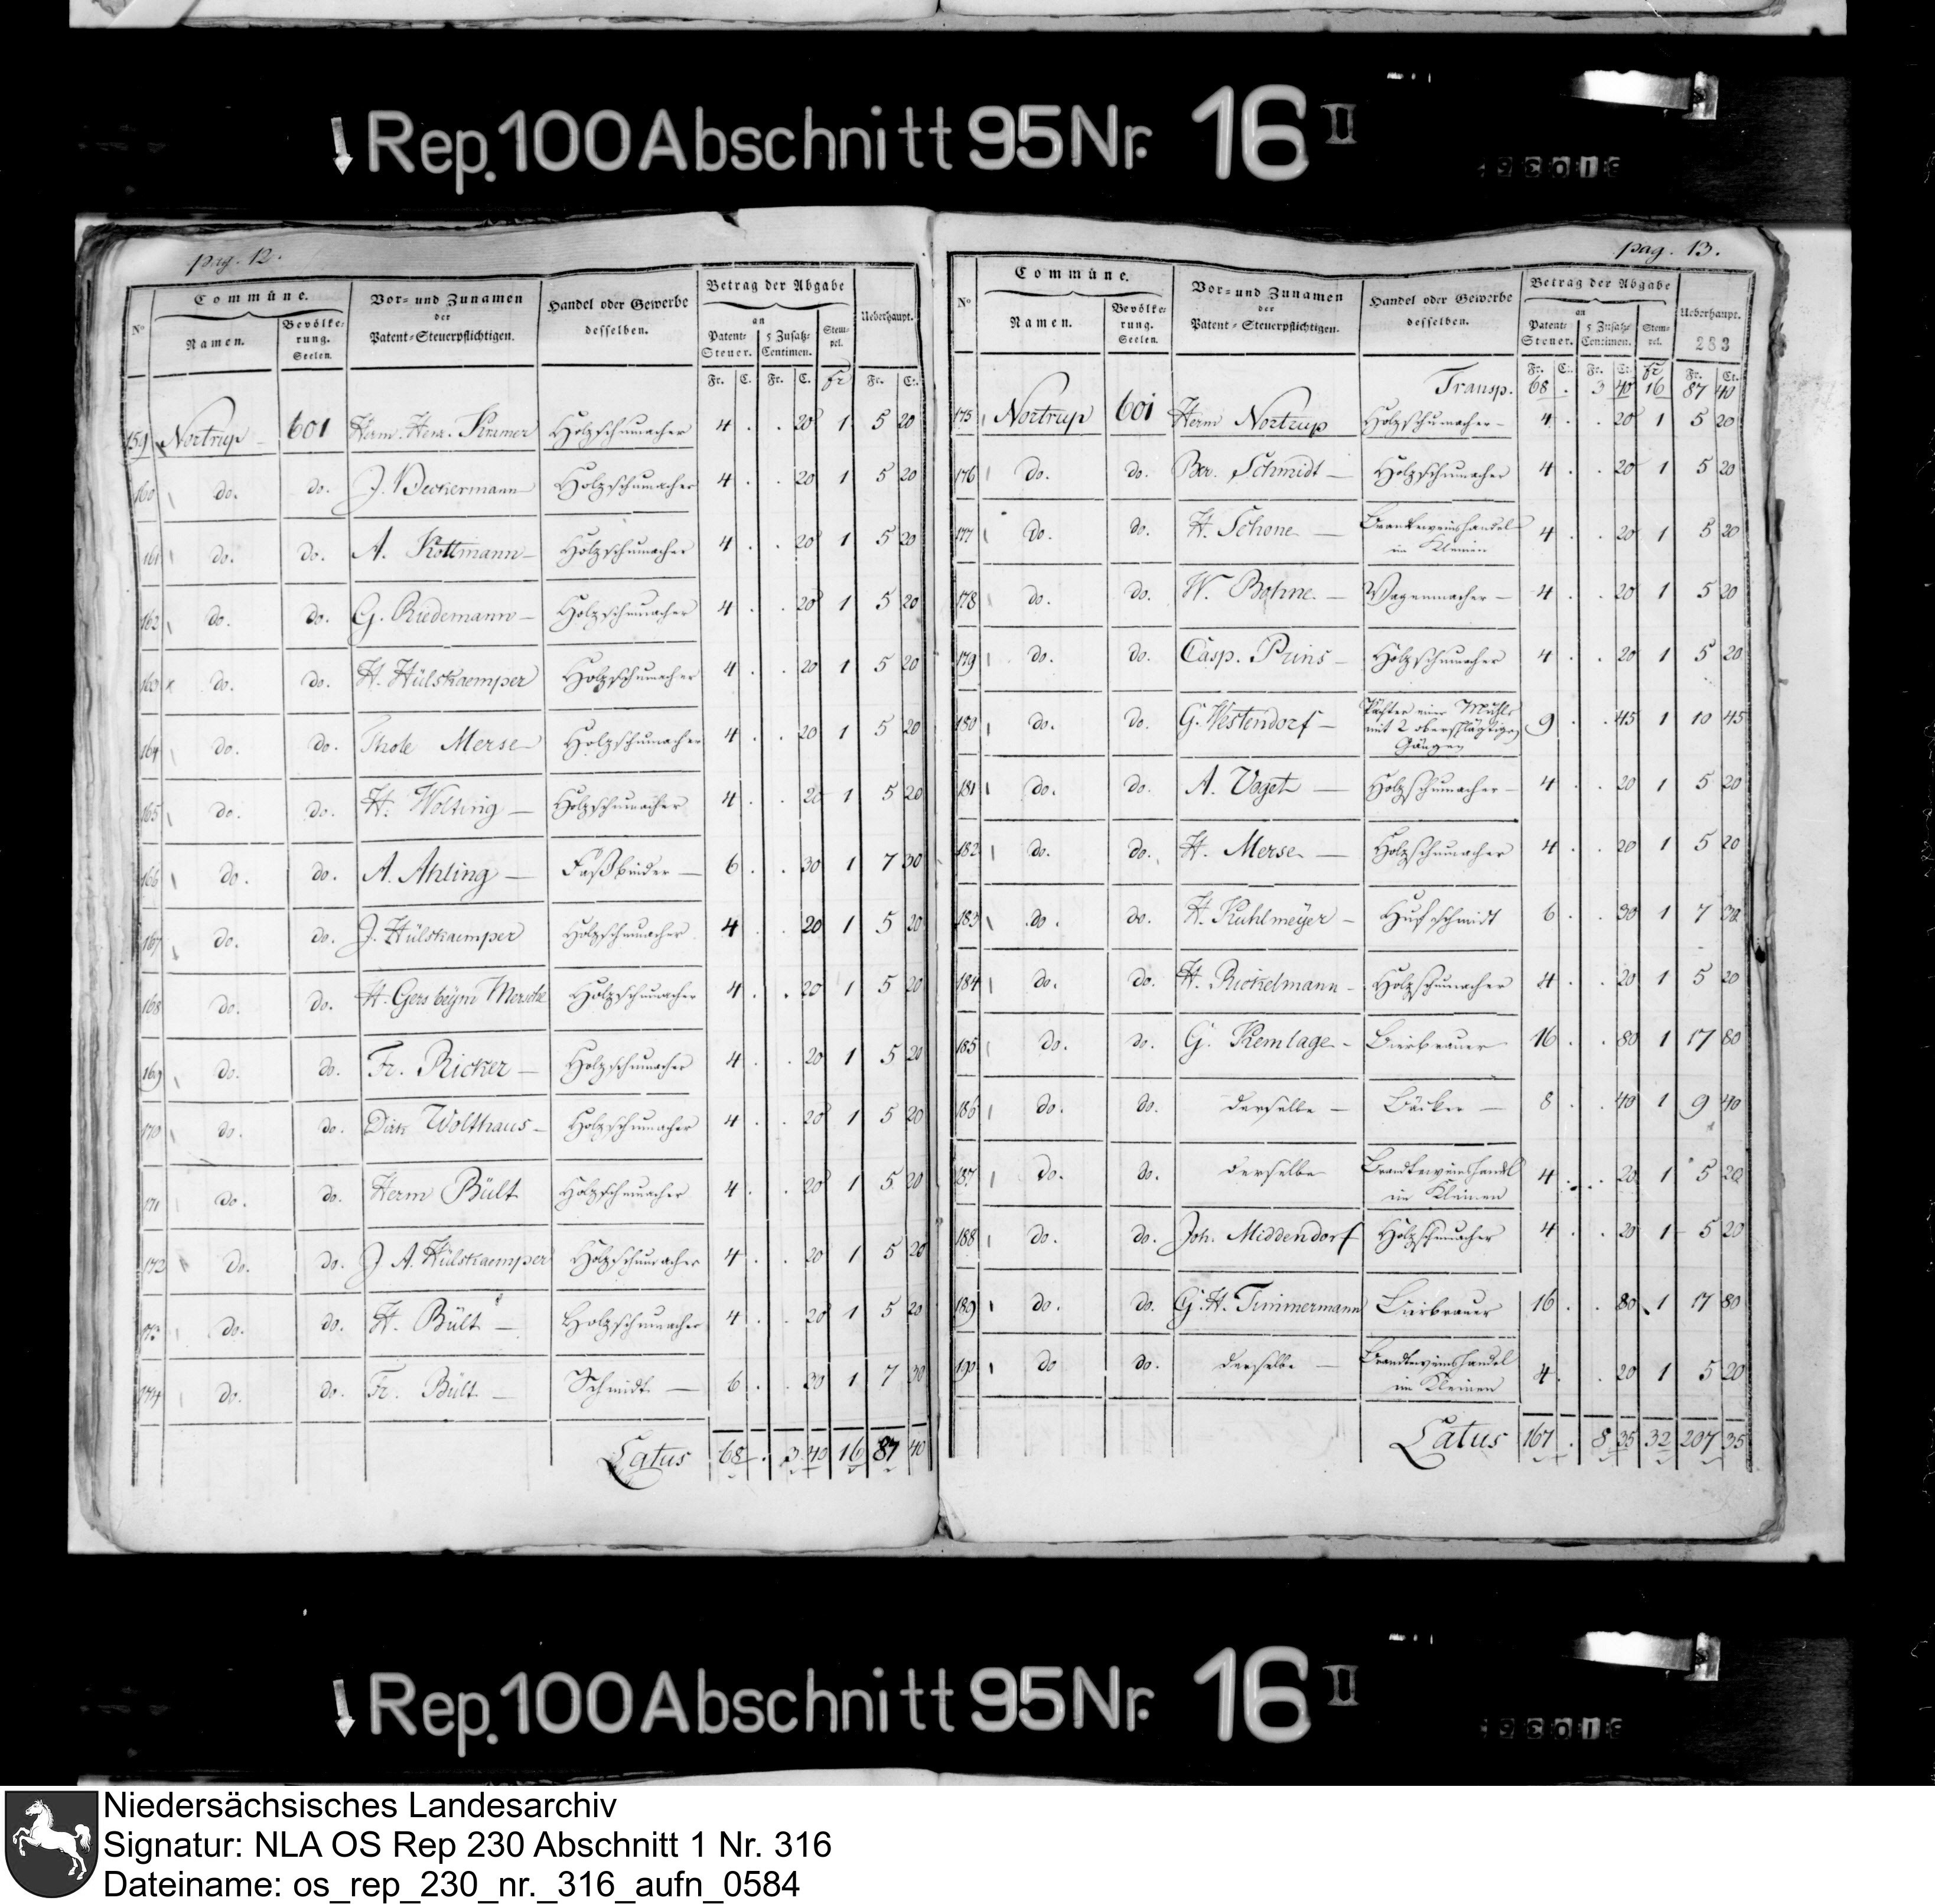 Rep. 100 Abschnitt 95 Nr. 16 II
pag. 12.
No Commüne. Vor- und Zunamen der Patent-Steuerpflichtigen. Handel oder Gewerbe desselben. Betrag der Abgabe an Ueberhaupt.
Namen. Bevölkerung. Seelen. Patent-Steuer. 5 Zusatz-Centimen. Stempel.
Fr. C. Fr. C. fr Fr. Ct.
159 Nortrup 601 Herm. Henr. Kramer Holzschumacher 4 . . 20 1 5 20
160 do. do. J. Beckermann Holzschumacher 4 . . 20 1 5 20
161 do. do. A. Kottmann Holzschumacher 4 . . 20 1 5 20
162 do. do. G. Riedemann Holzschumacher 4 . . 20 1 5 20
163 do. do. H. Hülskaemper Holzschumacher 4 . . 20 1 5 20
164 do. do. Thole Merse Holzschumacher 4 . . 20 1 5 20
165 do. do. H. Wolting Holzschumacher 4 . . 20 1 5 20
166 do. do. A. Ahling Faßbinder 6 . . 30 1 7 30
167 do. do. J. Hülskaemper Holzschumacher 4 . . 20 1 5 20
168 do. do. H. Gers beym Holzschumacher 4 . . 20 1 5 20
169 do. do. Fr. Ricker Holzschumacher 4 . . 20 1 5 20
170 do. do. Dirk Wolthaus Holzschumacher 4 . . 20 1 5 20
171 do. do. Herm Bült Holzschumacher 4 . . 20 1 5 20
172 do. do. J. A. Hülskaemper Holzschumacher 4 . . 20 1 5 20
173 do. do. H. Bült Holzschumacher 4 . . 20 1 5 20
174 do. do. Fr. Bült Schmidt 6 . . 30 1 7 30
Latus 68 . 3 40 16 87 40
pag. 13.
No Commüne. Vor- und Zunamen der Patent-Steuerpflichtigen. Handel oder Gewerbe desselben. Betrag der Abgabe an Ueberhaupt.
Namen. Bevölkerung. Seelen. Patent-Steuer. 5 Zusatz-Centimen. Stempel. 283
Fr. C. Fr. Ct. fr Fr. Ct.
Transp. 68 . 3 40 16 87 40
175 Nortrup 601 Herm Nortrup Holzschumacher 4 . . 20 1 5 20
176 do. do. Ber. Schmidt Holzschumacher 4 . . 20 1 5 20
177 do. do. H. Schone Brantweinshandel im Kleinen 4 . . 20 1 5 20
178 do. do. W. Bohne Wagenmacher 4 . . 20 1 5 20
179 do. do. Casp. Prins Holzschumacher 4 . . 20 1 5 20
180 do. do. G. Westendorf Pächter einer Mühle mit 2 oberschlägtigen Gängen 9 . . 45 1 10 45
181 do. do. A. Voget Holzschumacher 4 . . 20 1 5 20
182 do. do. H. Merse Holzschumacher 4 . . 20 1 5 20
183 do. do. H. Kuhlmeÿer Hufschmidt 6 . . 30 1 7 30
184 do. do. H. Rickelmann Holzschumacher 4 . . 20 1 5 20
185 do. do. G. Kemlage Bierbrauer 16 . . 80 1 17 80
186 do. do. derselbe Bäcker 8 . . 40 1 9 40
187 do. do. derselbe Brandtweinshandel im Kleinen 4 . . 20 1 5 20
188 do. do. Joh. Middendorf Holzschumacher 4 . . 20 1 5 20
189 do. do. G. H. Timmermann Bierbrauer 16 . . 80 1 17 80
190 do do. derselbe Brandtweinshandel im Kleinen 4 . . 20 1 5 20
Latus 167 . 8 35 32 207 35
Rep. 100 Abschnitt 95 Nr. 16 II
Niedersächsisches Landesarchiv
Signatur: NLA OS Rep 230 Abschnitt 1 Nr. 316
Dateiname: os_rep_230_nr._316_aufn_0584